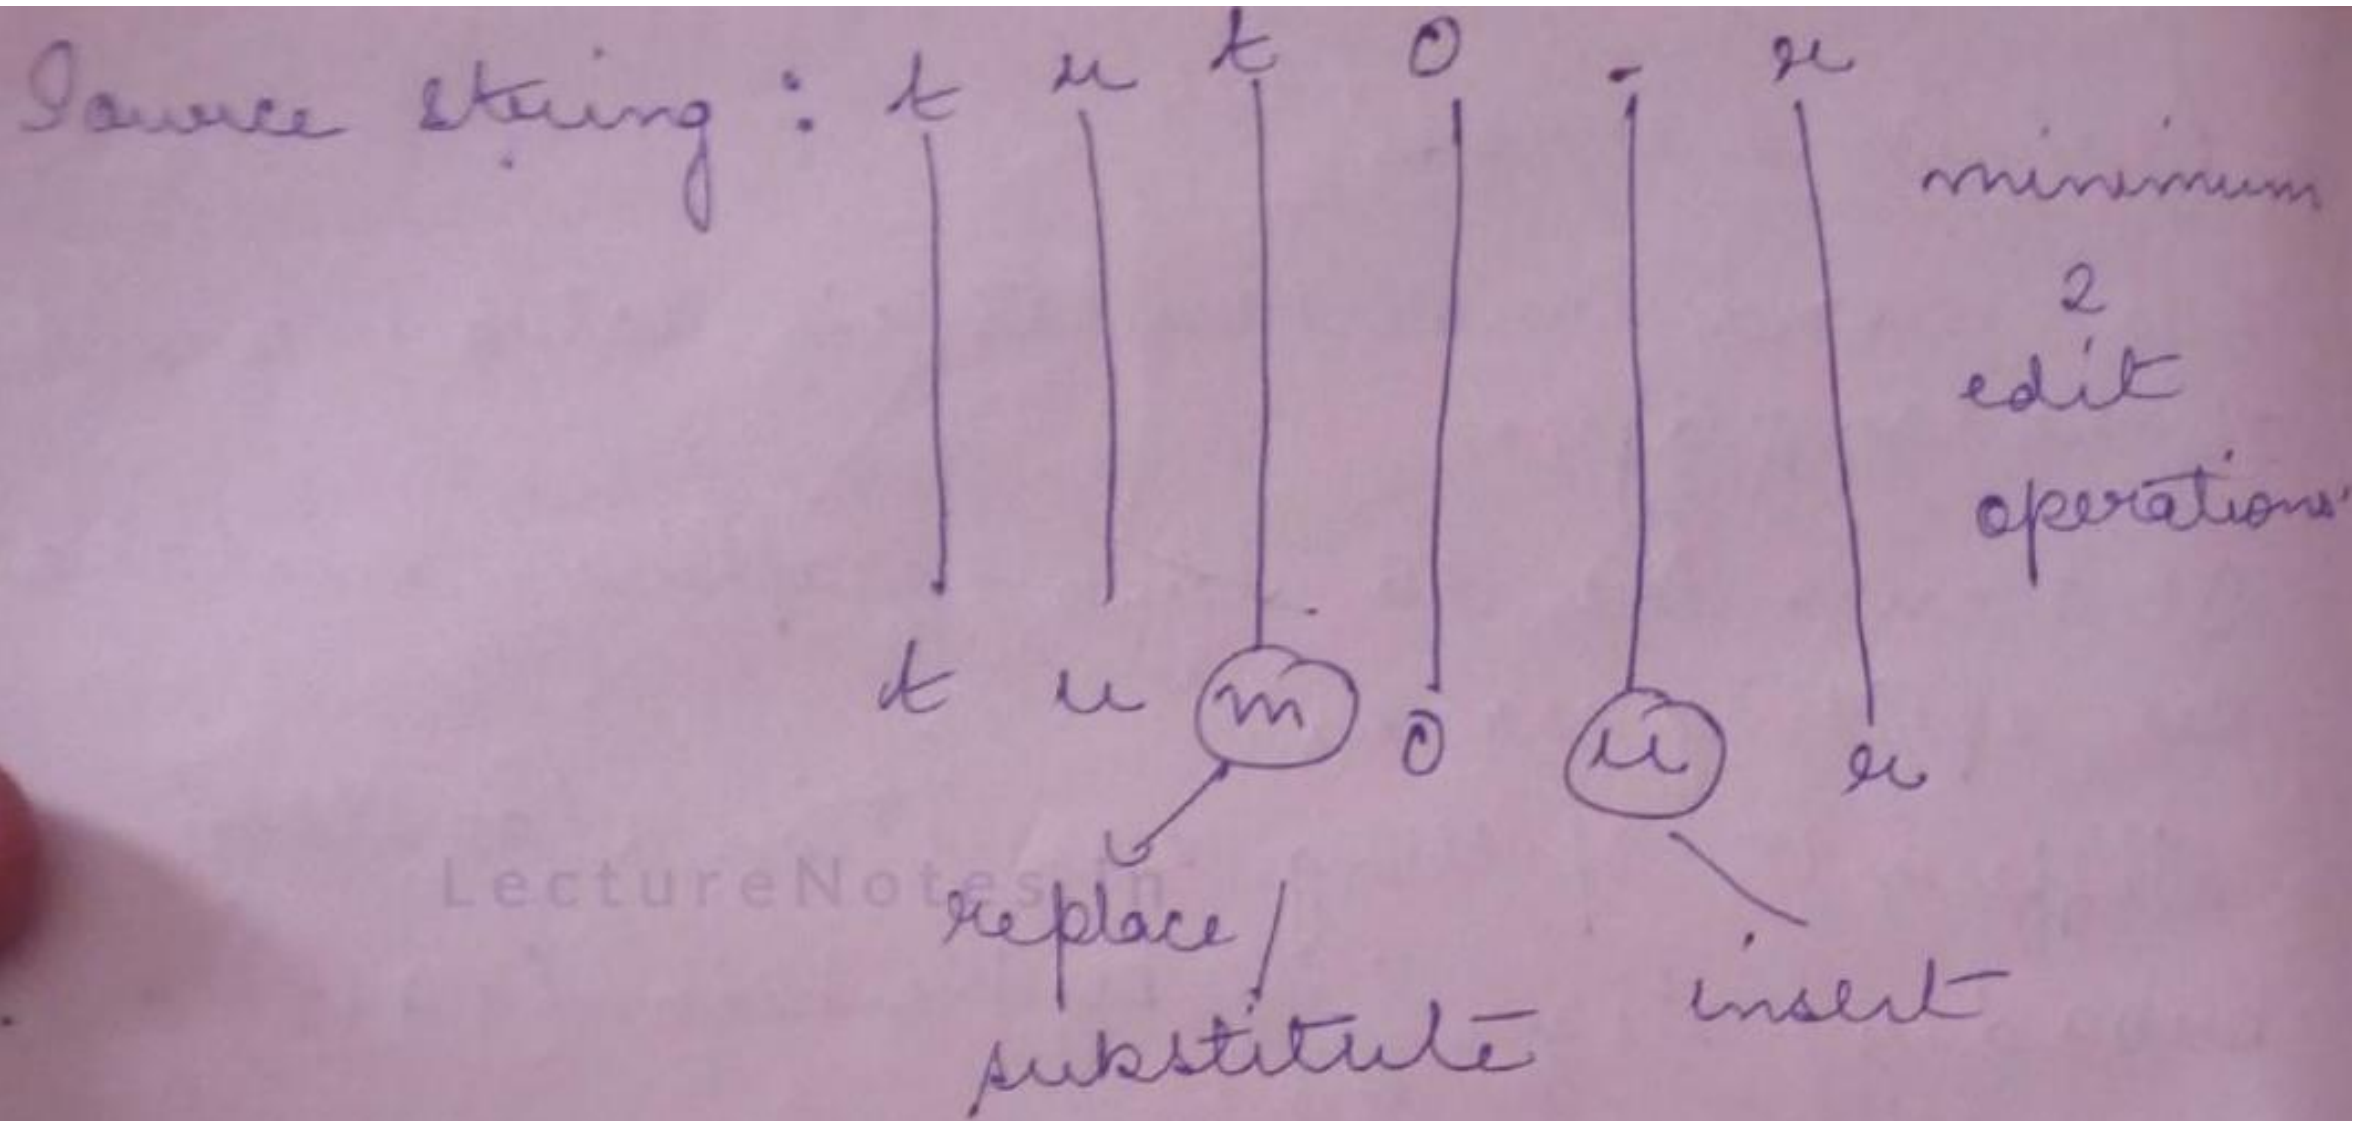 Source string : t u t o - r
minimum
2
edit
operations
t u m o u r
LectureNotes.in
replace /
substitute
insert